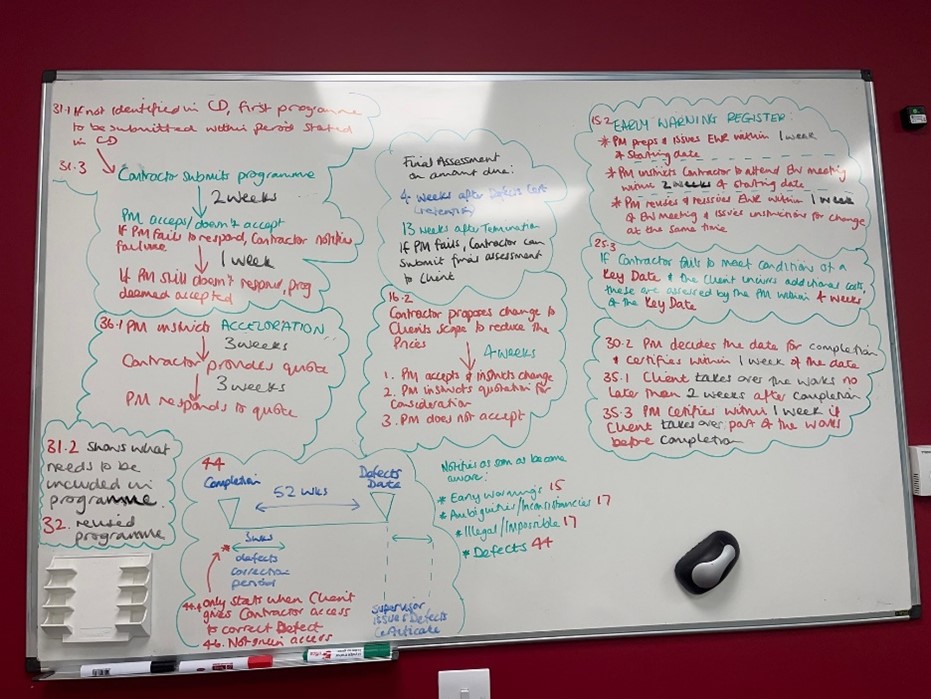 31.1 If not identified in CD, first programme
to be submitted within period stated
in CD
31.3
Contractor submits programme
2 weeks
PM acceps/doesn't accept
If PM fails to respond, Contractor notifies
failure
1 week
If PM still doesn't respond, prog
deemed accepted
36.1 PM instructs ACCELORATION
3 weeks
Contractor provides quote
3 weeks
PM responds to quote
31.2 shows what
needs to be
included in
programme.
32. revised
programme
Final Assessment
on amount due:
4 weeks after Defects Cert
(retention)
13 weeks after Termination
If PM fails, Contractor can
submit final assessment
to Client
16.2
Contractor proposes change to
Clients scope to reduce the
Prices
4 weeks
1. PM accepts & instructs change
2. PM instructs quotation for
consideration
3. PM does not accept
15.2 EARLY WARNING REGISTER:
* PM preps & issues EWR within 1 week
of starting date
* PM instructs Contractor to attend EW meeting
within 2 weeks of starting date
* PM revises & reissues EWR within 1 week
of EW meeting & issues instructions for change
at the same time
25.3
If Contractor fails to meet condition of a
Key Date & the Client incurs additional costs,
these are assessed by the PM within 4 weeks
of the Key Date
30.2 PM decides the date for completion
& certifies within 1 week of the date
35.1 Client takes over the works no
later than 2 weeks after completion
35.3 PM certifies within 1 week if
Client takes over part of the works
before completion
44
Completion
Defects
Date
52 wks
3wks
defects
correction
period
only starts when Client
gives Contractor access
to correct Defect
46. Not given access
Supervisor
issues Defects
Certificate
Notifies as soon as become
aware:
* Early warnings 15
* Ambiguities/Inconsistancies 17
* Illegal/Impossible 17
* Defects 44